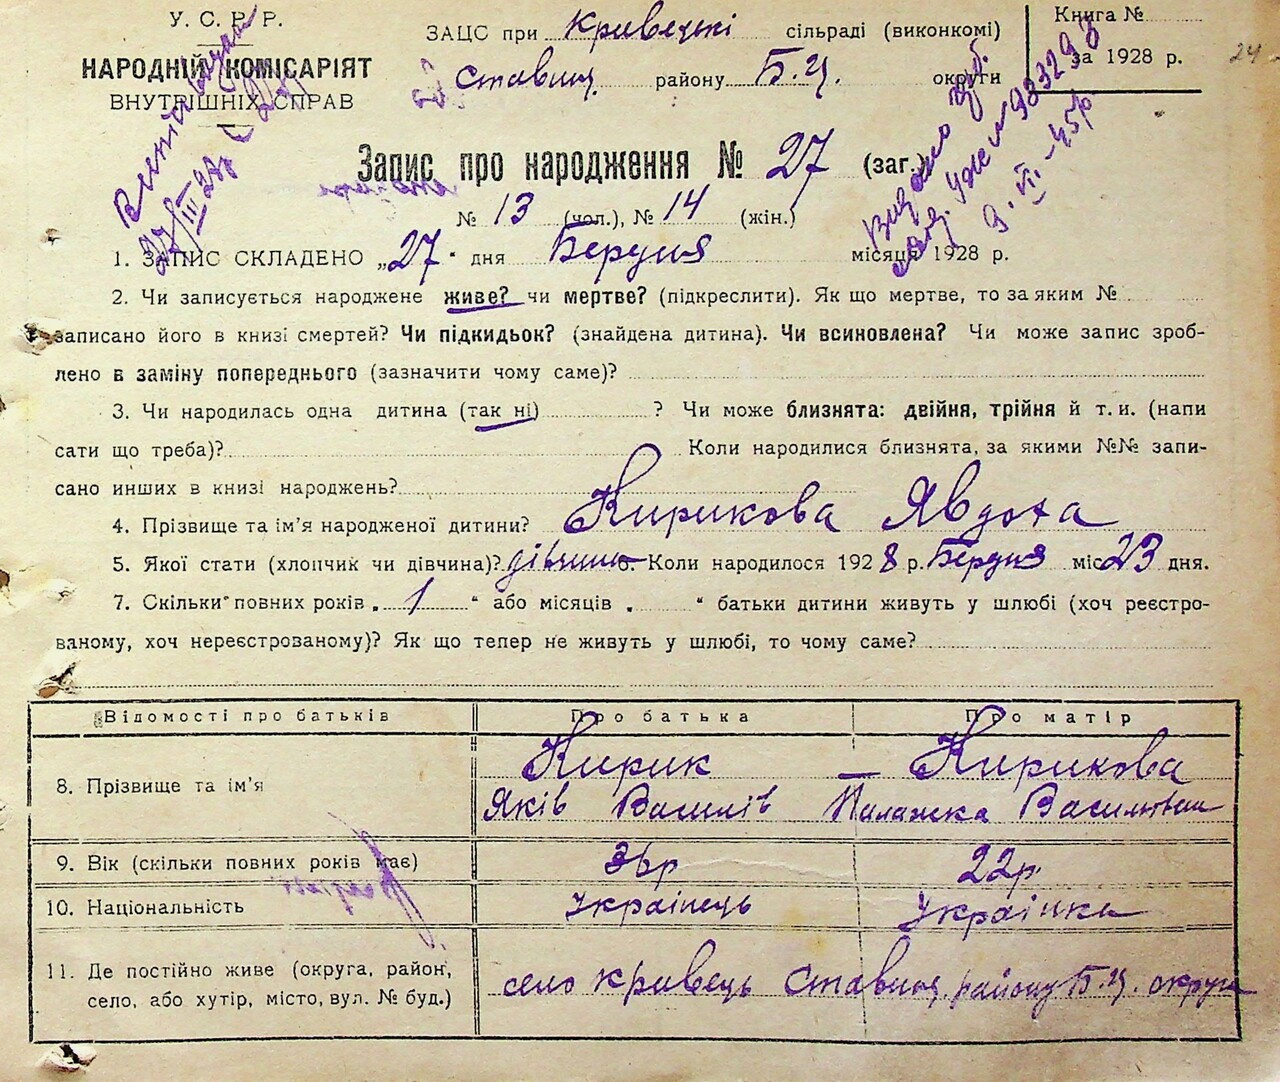 У. С. Р. Р.
НАРОДНІЙ КОМІСАРІЯТ
ВНУТРІШНІХ СПРАВ
ЗАЦС при Кривецькі сільраді (виконкомі)
Ставищ. району Б.Ц. округи
Книга №
за 1928 р.
24
27/III 28р
Видано
9. VI. – 45р
Запис про народження № 27 (заг.)
№ 13 (чол.), № 14 (жін.)
1. ЗАПИС СКЛАДЕНО „27“ дня Березня місяця 1928 р.
2. Чи записується народжене живе? чи мертве? (підкреслити). Як що мертве, то за яким №
записано його в книзі смертей? Чи підкидьок? (знайдена дитина). Чи всиновлена? Чи може запис зроб-
лено в заміну попереднього (зазначити чому саме)?
3. Чи народилась одна дитина (так ні) ? Чи може близнята: двійня, трійня й т. и. (напи
сати що треба)? Коли народилися близнята, за якими №№ запи-
сано инших в книзі народжень?
4. Прізвище та ім'я народженої дитини? Кирикова Явдоха
5. Якої стати (хлопчик чи дівчина)? дівчина 6. Коли народилося 1928 р. Березня міс 23 дня.
7. Скільки повних років „ 1 “ або місяців „ “ батьки дитини живуть у шлюбі (хоч реєстро-
ваному, хоч нереєстрованому)? Як що тепер не живуть у шлюбі, то чому саме?
Відомості про батьків Про батька Про матір
8. Прізвище та ім'я Кирик – Кирикова
Яків Василів Палажка Василівна
9. Вік (скільки повних років має) 36р 22р.
10. Національність Українець Українка
11. Де постійно живе (округа, район,
село, або хутір, місто, вул. № буд.) село Кривець Ставищ. району Б.Ц. округи